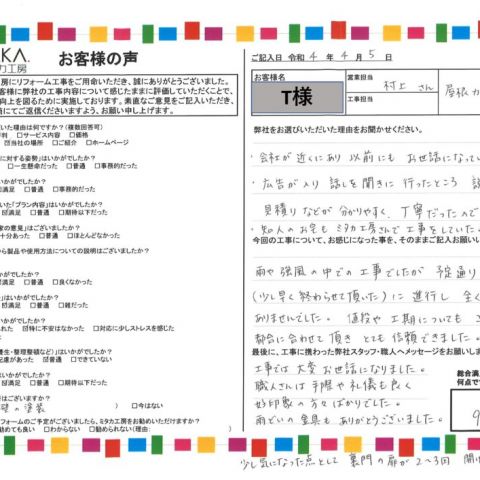 お客様の声
カ工房
房にリフォーム工事をご用命いただき、誠にありがとうございました。
が弊社の工事内容について感じたままに評価していただくことで、
向上を図るために実施しております。素直なご意見をご記入いただき、
にてご返信くださいますよう、お願い申し上げます。
いた理由は何ですか？(複数回答可)
評判 □サービス内容 □価格
当社の場所 □ご紹介 □ホームページ
に対する姿勢」はいかがでしたか？
□一生懸命だった □普通 □事務的だった
はいかがでしたか？
満足 □普通 □事務的だった
いた「プラン内容」はいかがでしたか？
満足 □普通 □期待以下だった
家の意見」はございましたか？
十分あった □普通 □ほとんどなかった
から製品や使用方法についての説明はございましたか？
はいかがでしたか？
満足 □普通 □良くなかった
」はいかがでしたか？
満足 □普通 □雑だった
いかがでしたか？
れた 特に不安はなかった □対応に少しストレスを感じた
養生・整理整頓など)」はいかがでしたか？
配慮があった 普通 □できていない
はいかがでしたか？
満足 □普通 □期待以下だった
事はございますか？
壁の塗装 ) □今はない
フォームのご予定がございましたら、ミタカ工房をお勧めいただけますか？
勧めても良い □わからない □勧められない(理由:
ご記入日 令和 4 年 4 月 5 日
お客様名
T様
営業担当
村上 さん
工事担当
屋根カ
弊社をお選びいただいた理由をお聞かせください。
・会社が近くにあり 以前にも お世話になってい
・広告が入り 話しを聞きに 行ったところ 説
見積りなどが 分かりやすく、丁寧だったので
・知人のお宅も ミタカ工房さんで 工事をしていた。
今回の工事について、お感じになった事を、そのままご記入お願い
雨や強風の中での工事でしたが 予定通り
(少し早く終わらせて頂いた)に 進行し 全く
ありませんでした。 値段や 工期についても こ
都合に合わせて頂き とても信頼できました。
最後に、工事に携わった弊社スタッフ・職人へメッセージをお願いしま
工事では 大変 お世話になりました。
職人さんは 手際や 礼儀も良く
好印象の方々ばかりでした。
雨どいの金具も ありがとうございました。
総合満
何点で
9
少し気になった点として 裏門の扉が 2~3回 開